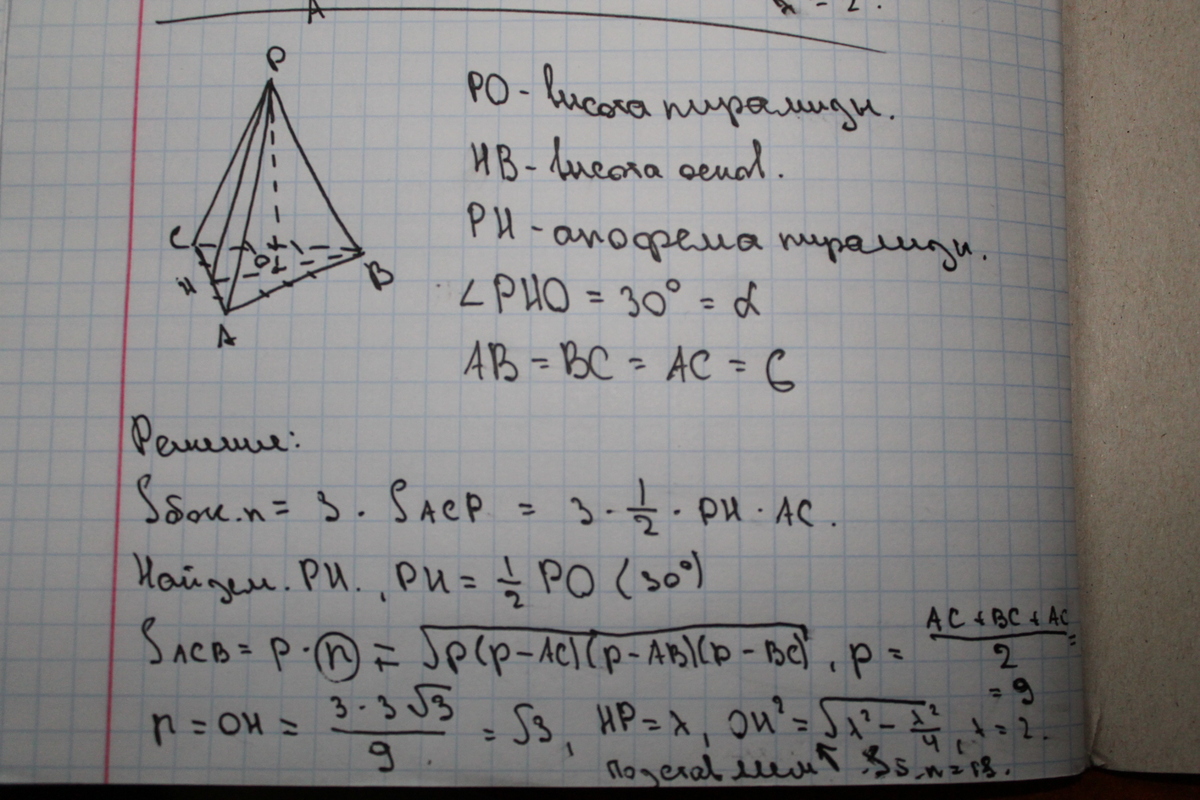 A
P
C
O
H
B
A
PO - висота пирамиды.
HB - висота основ.
PH - апофема пирамиды.
∠PHO = 30° = α
AB = BC = AC = 6
Решение:
Sбок.п = 3 · SACP = 3 · 1/2 · PH · AC.
Найдем. PH. , PH = 1/2 PO (30°)
SACB = p · r = √p(p - AC)(p - AB)(p - BC) , p = AC + BC + AC / 2 = 9
r = OH = 3 · 3√3 / 9 = √3, HP = x, OH² = √x² - x²/4 , x = 2.
Подставляем